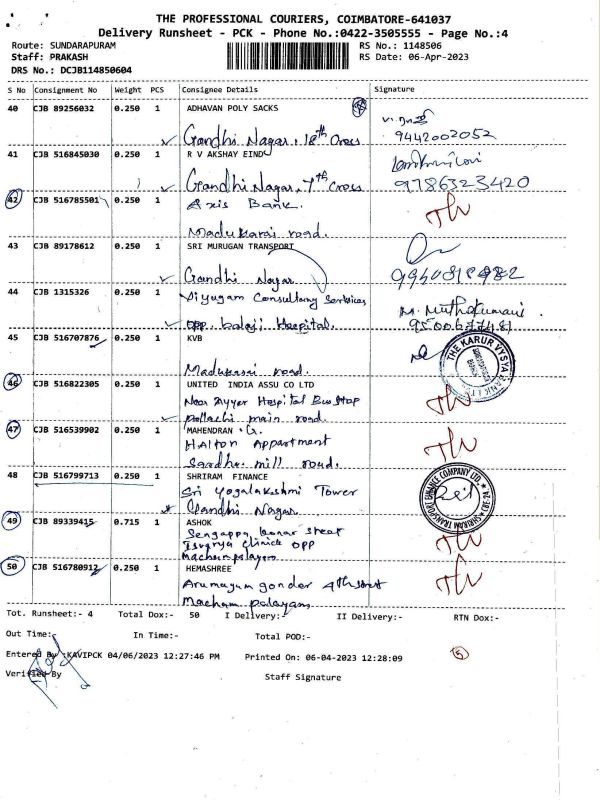 THE PROFESSIONAL COURIERS, COIMBATORE-641037
Delivery Runsheet - PCK - Phone No.:0422-3505555 - Page No.:4
Route: SUNDARAPURAM RS No.: 1148506
Staff: PRAKASH RS Date: 06-Apr-2023
DRS No.: DCJB114850604
S No Consignment No Weight PCS Consignee Details Signature
40 CJB 89256032 0.250 1 ADHAVAN POLY SACKS
Gandhi Nagar, 18th Cross 9442002052
41 CJB 516845030 0.250 1 R V AKSHAY EIND
Gandhi Nagar, 7th Cross 9786323420
42 CJB 516785501 0.250 1 Axis Bank.
Madukarai road.
43 CJB 89178612 0.250 1 SRI MURUGAN TRANSPORT
Gandhi Nagar
44 CJB 1315326 0.250 1 Viyugam Consultany Services
opp. balaji Hospital. M. Muthukumari
45 CJB 516707876 0.250 1 KVB
THE KARUR VYSYA BANK LTD
Madukarai road.
46 CJB 516822305 0.250 1 UNITED INDIA ASSU CO LTD
Near Ayyer Hospital Bus stop
pollachi main road.
47 CJB 516539902 0.250 1 MAHENDRAN . G.
Halton Appartment
Saradha mill road.
48 CJB 516799713 0.250 1 SHRIRAM FINANCE
Sri Yogalakshmi Tower
SHRIRAM TRANSPORT FINANCE COMPANY LTD. CBE-24
Gandhi Nagar
49 CJB 89339415 0.715 1 ASHOK
Sengappa konar street
Isvarya Clinick opp
Machampalayam
50 CJB 516780912 0.250 1 HEMASHREE
Arumugam gonder 4th street
Macham palayam
Tot. Runsheet:- 4 Total Dox:- 50 I Delivery:- II Delivery:- RTN Dox:-
Out Time:- In Time:- Total POD:-
Entered By :KAVIPCK 04/06/2023 12:27:46 PM Printed On: 06-04-2023 12:28:09 5
Verified By Staff Signature